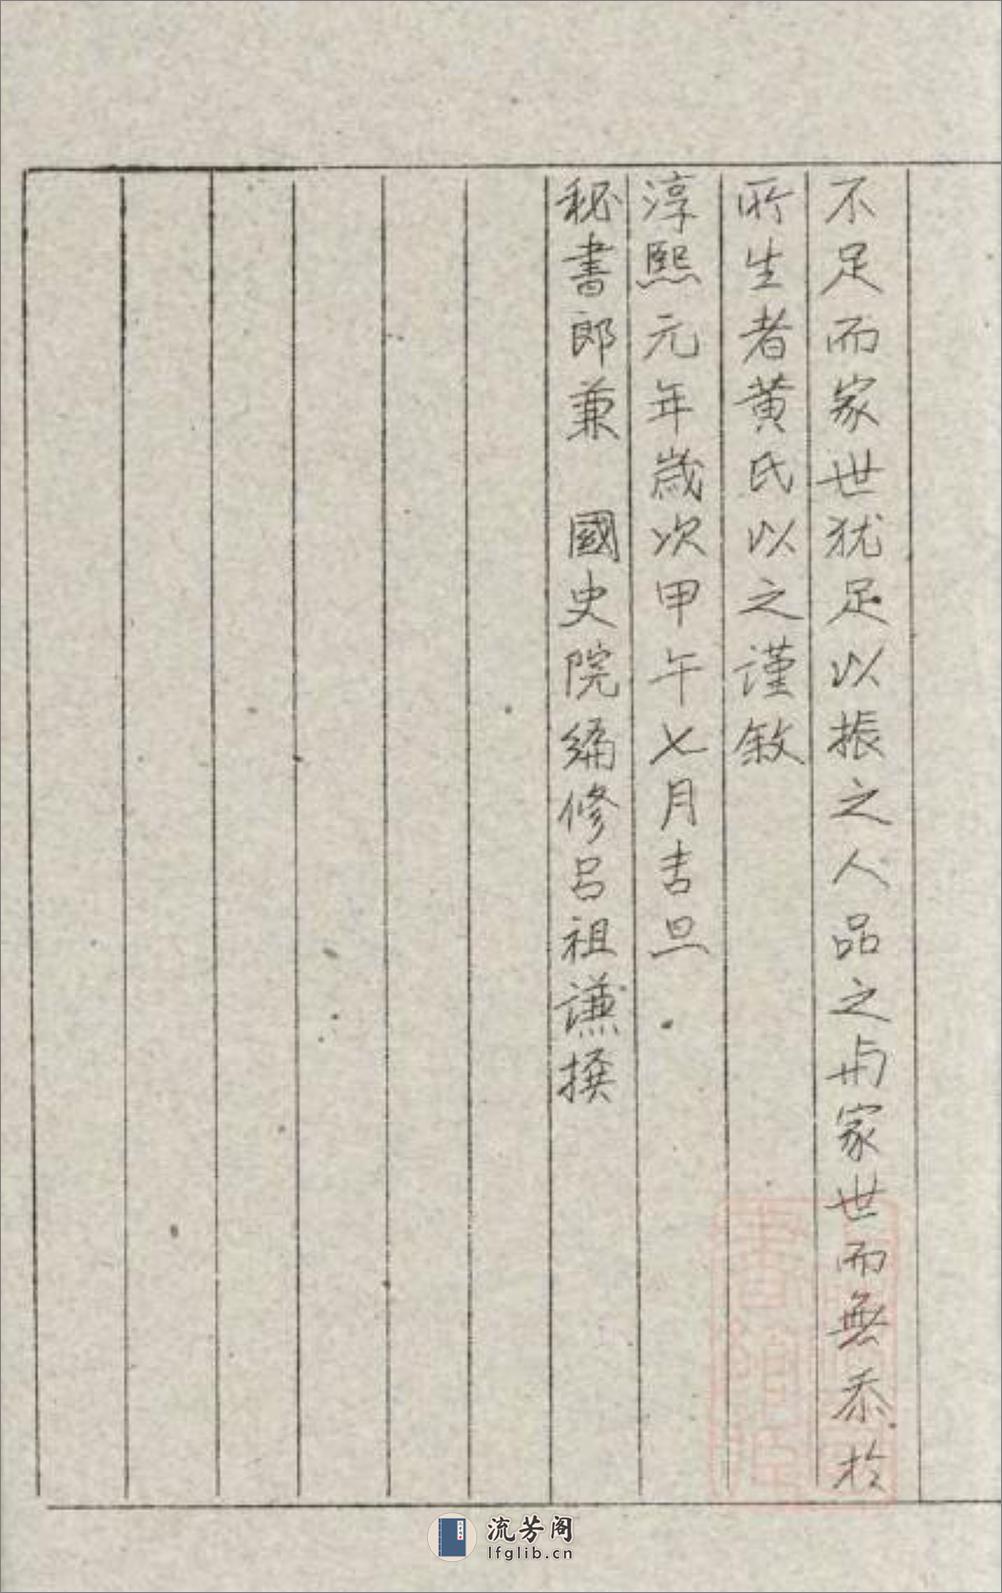 不足而家世犹足以振之人品之与家世而無忝於
所生者黄氏以之谨敘
淳熙元年歲次甲午七月吉旦
秘書郎兼 國史院编修吕祖谦撰
流芳阁
lfglib.cn